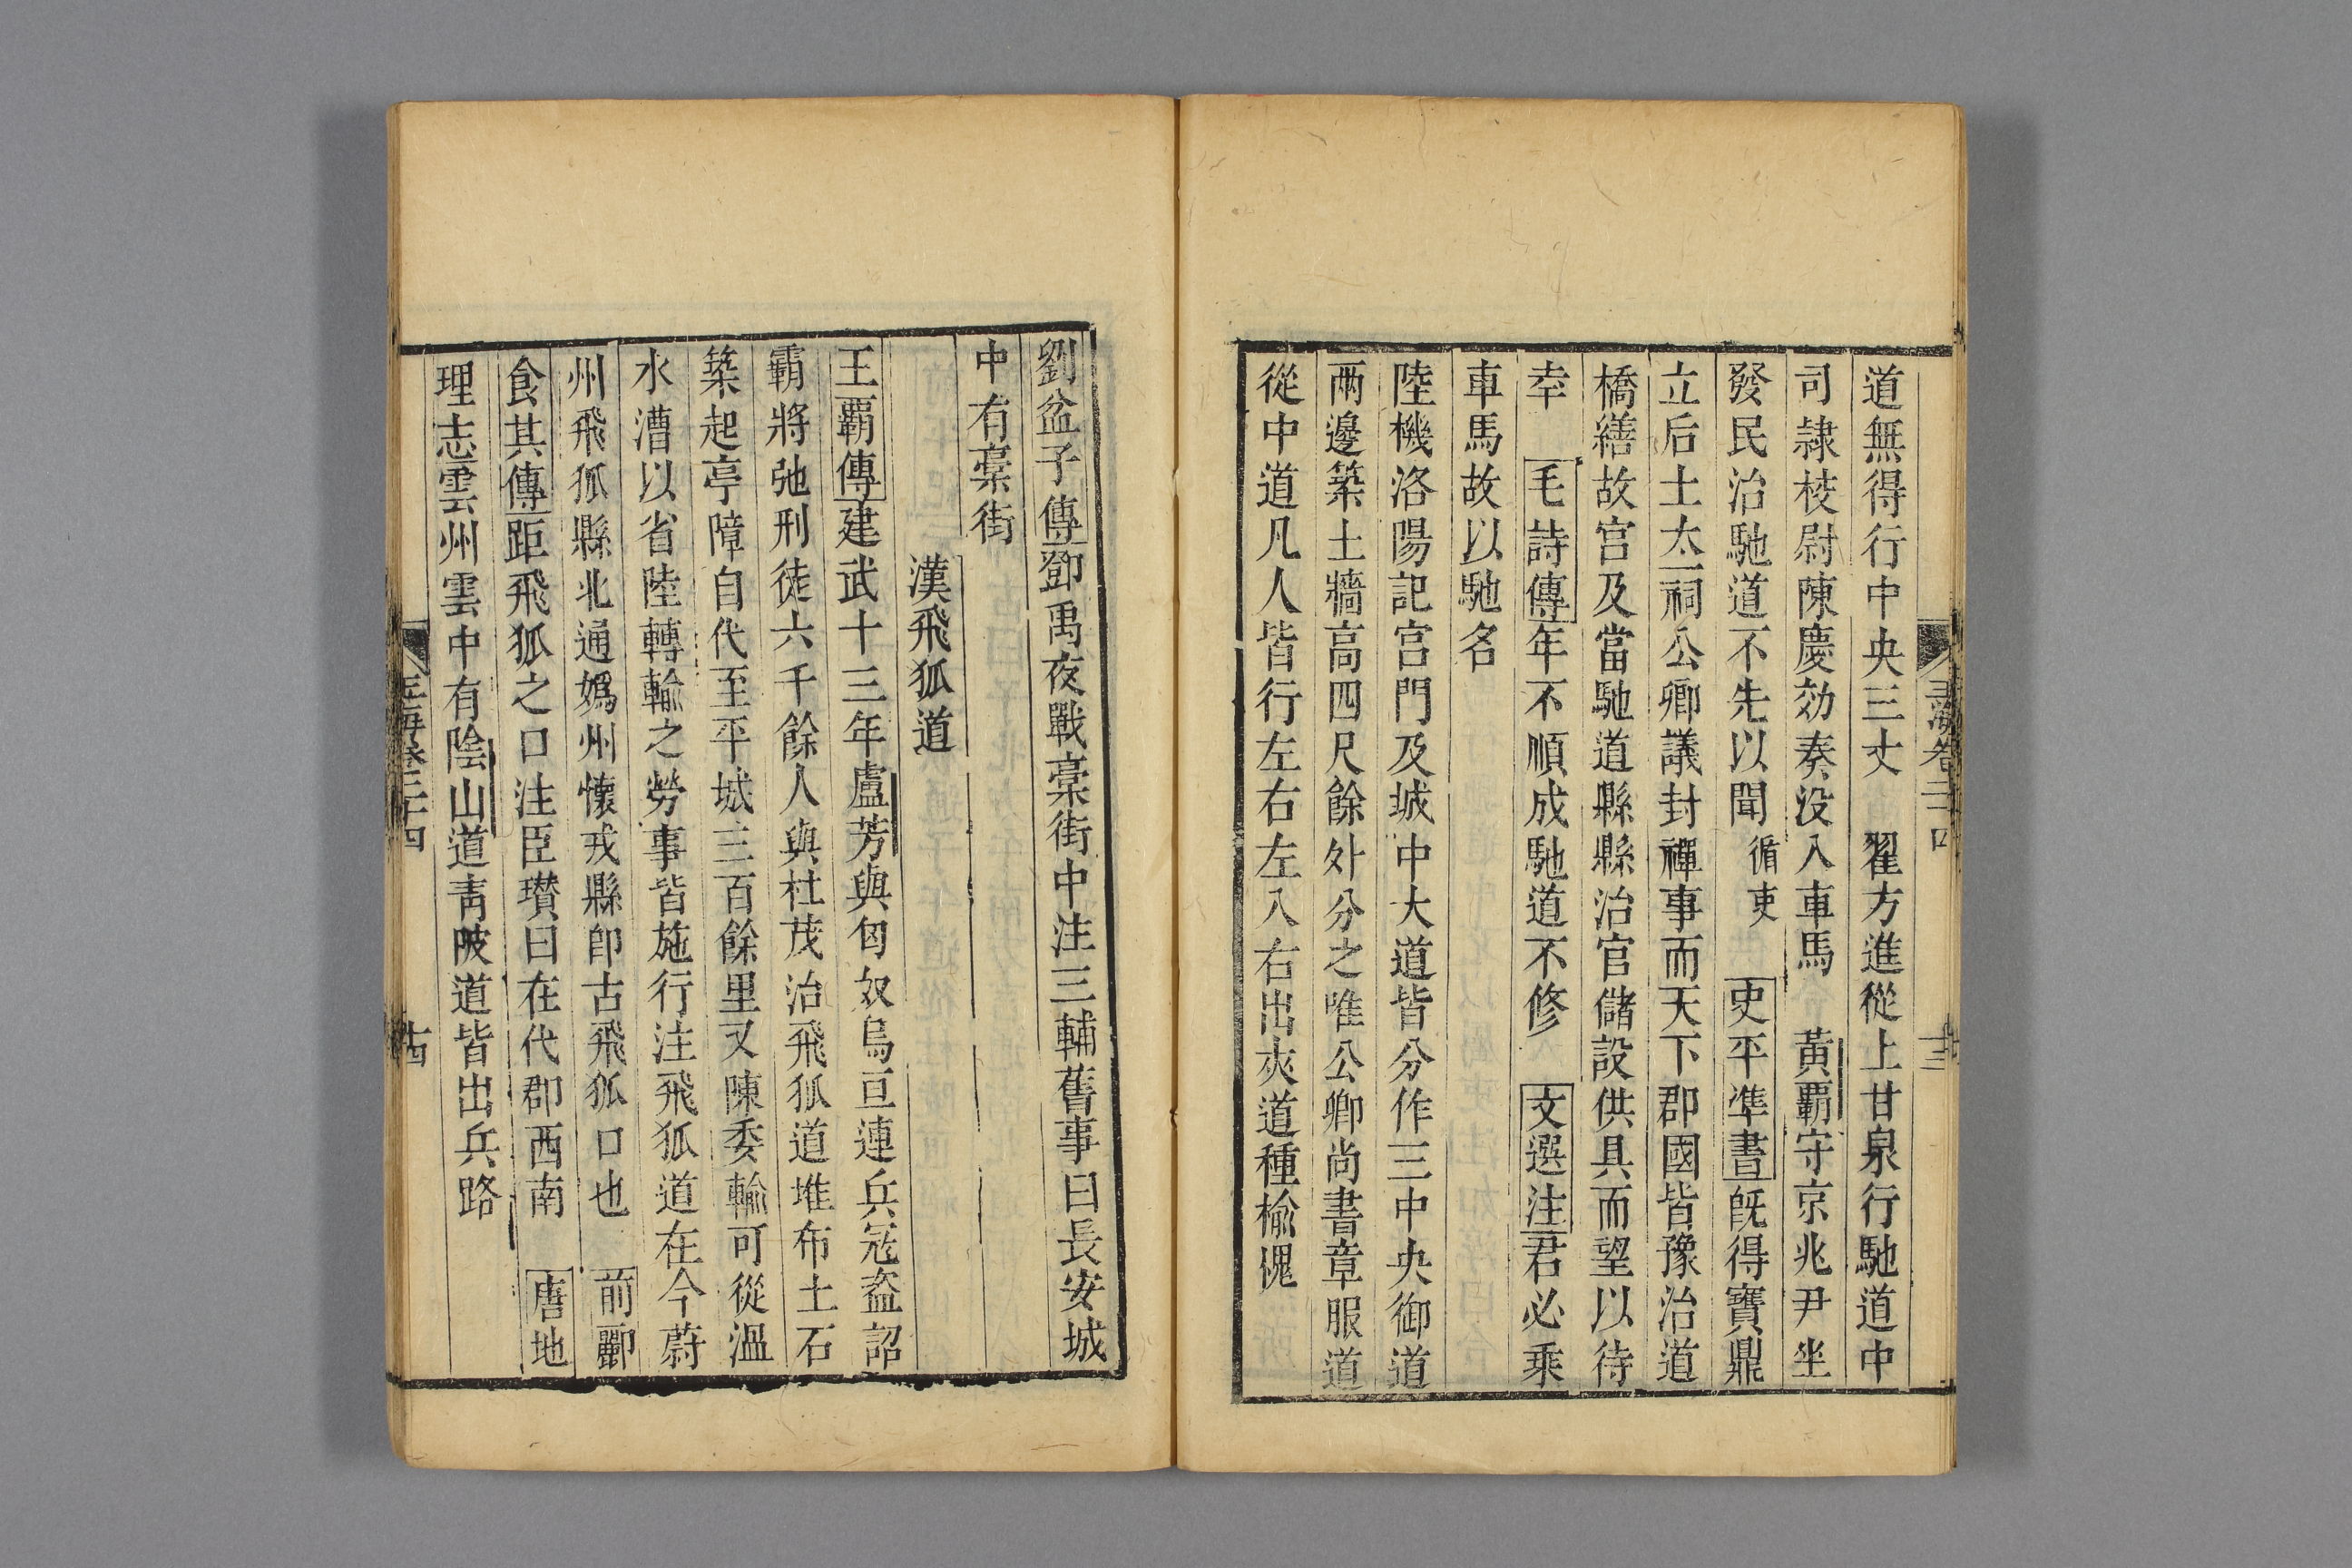 玉海卷二十四
十三
道無得行中央三丈　翟方進從上甘泉行馳道中
司隷校尉陳慶効奏没入車馬　黃覇守京兆尹坐
發民治馳道不先以聞循吏　史平準書旣得寶鼎
立后土太一祠公卿議封禪事而天下郡國皆豫治道
橋繕故宫及當馳道縣縣治官儲設供具而望以待
幸　毛詩傳年不順成馳道不修　文選注君必乘
車馬故以馳名
陸機洛陽記宫門及城中大道皆分作三中央御道
兩邊築土牆高四尺餘外分之唯公卿尚書章服道
從中道凡人皆行左右左入右出夾道種榆槐
劉盆子傳鄧禹夜戰藁街中注三輔舊事曰長安城
中有藁街
漢飛狐道
王覇傳建武十三年盧芳與匈奴烏亘連兵冦盗詔
霸將弛刑徒六千餘人與杜茂治飛狐道堆布土石
築起亭障自代至平城三百餘里又陳委輸可從溫
水漕以省陸轉輸之勞事皆施行注飛狐道在今蔚
州飛狐縣北通媯州懷戎縣卽古飛狐口也　前酈
食其傳距飛狐之口注臣瓚曰在代郡西南　唐地
理志雲州雲中有陰山道靑陂道皆出兵路
玉海卷二十四
十四